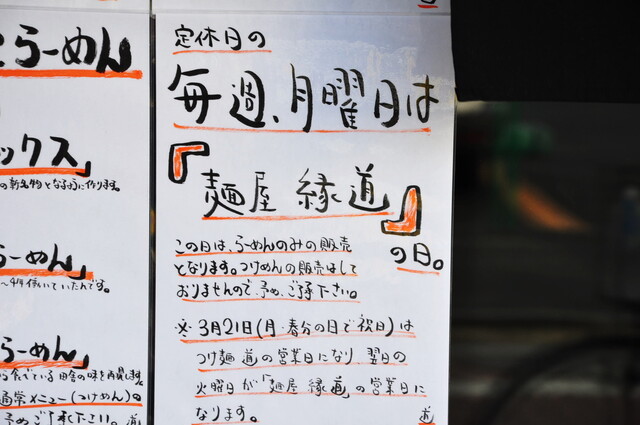 定休日の
毎週、月曜日は
『麺屋 縁道』
の日。
この日は、らーめんのみの販売
となります。つけめんの販売はして
おりませんので、予め、ご了承下さい。
※3月21日(月・春分の日で祝日)は
つけ麺 道の営業日になり 翌日の
火曜日が「麺屋 縁道」の営業日に
なります。
道
らーめん
ックス」
の新名物となるように作ります。
らーめん」
らーめん」
通常メニュー(つけめん)の